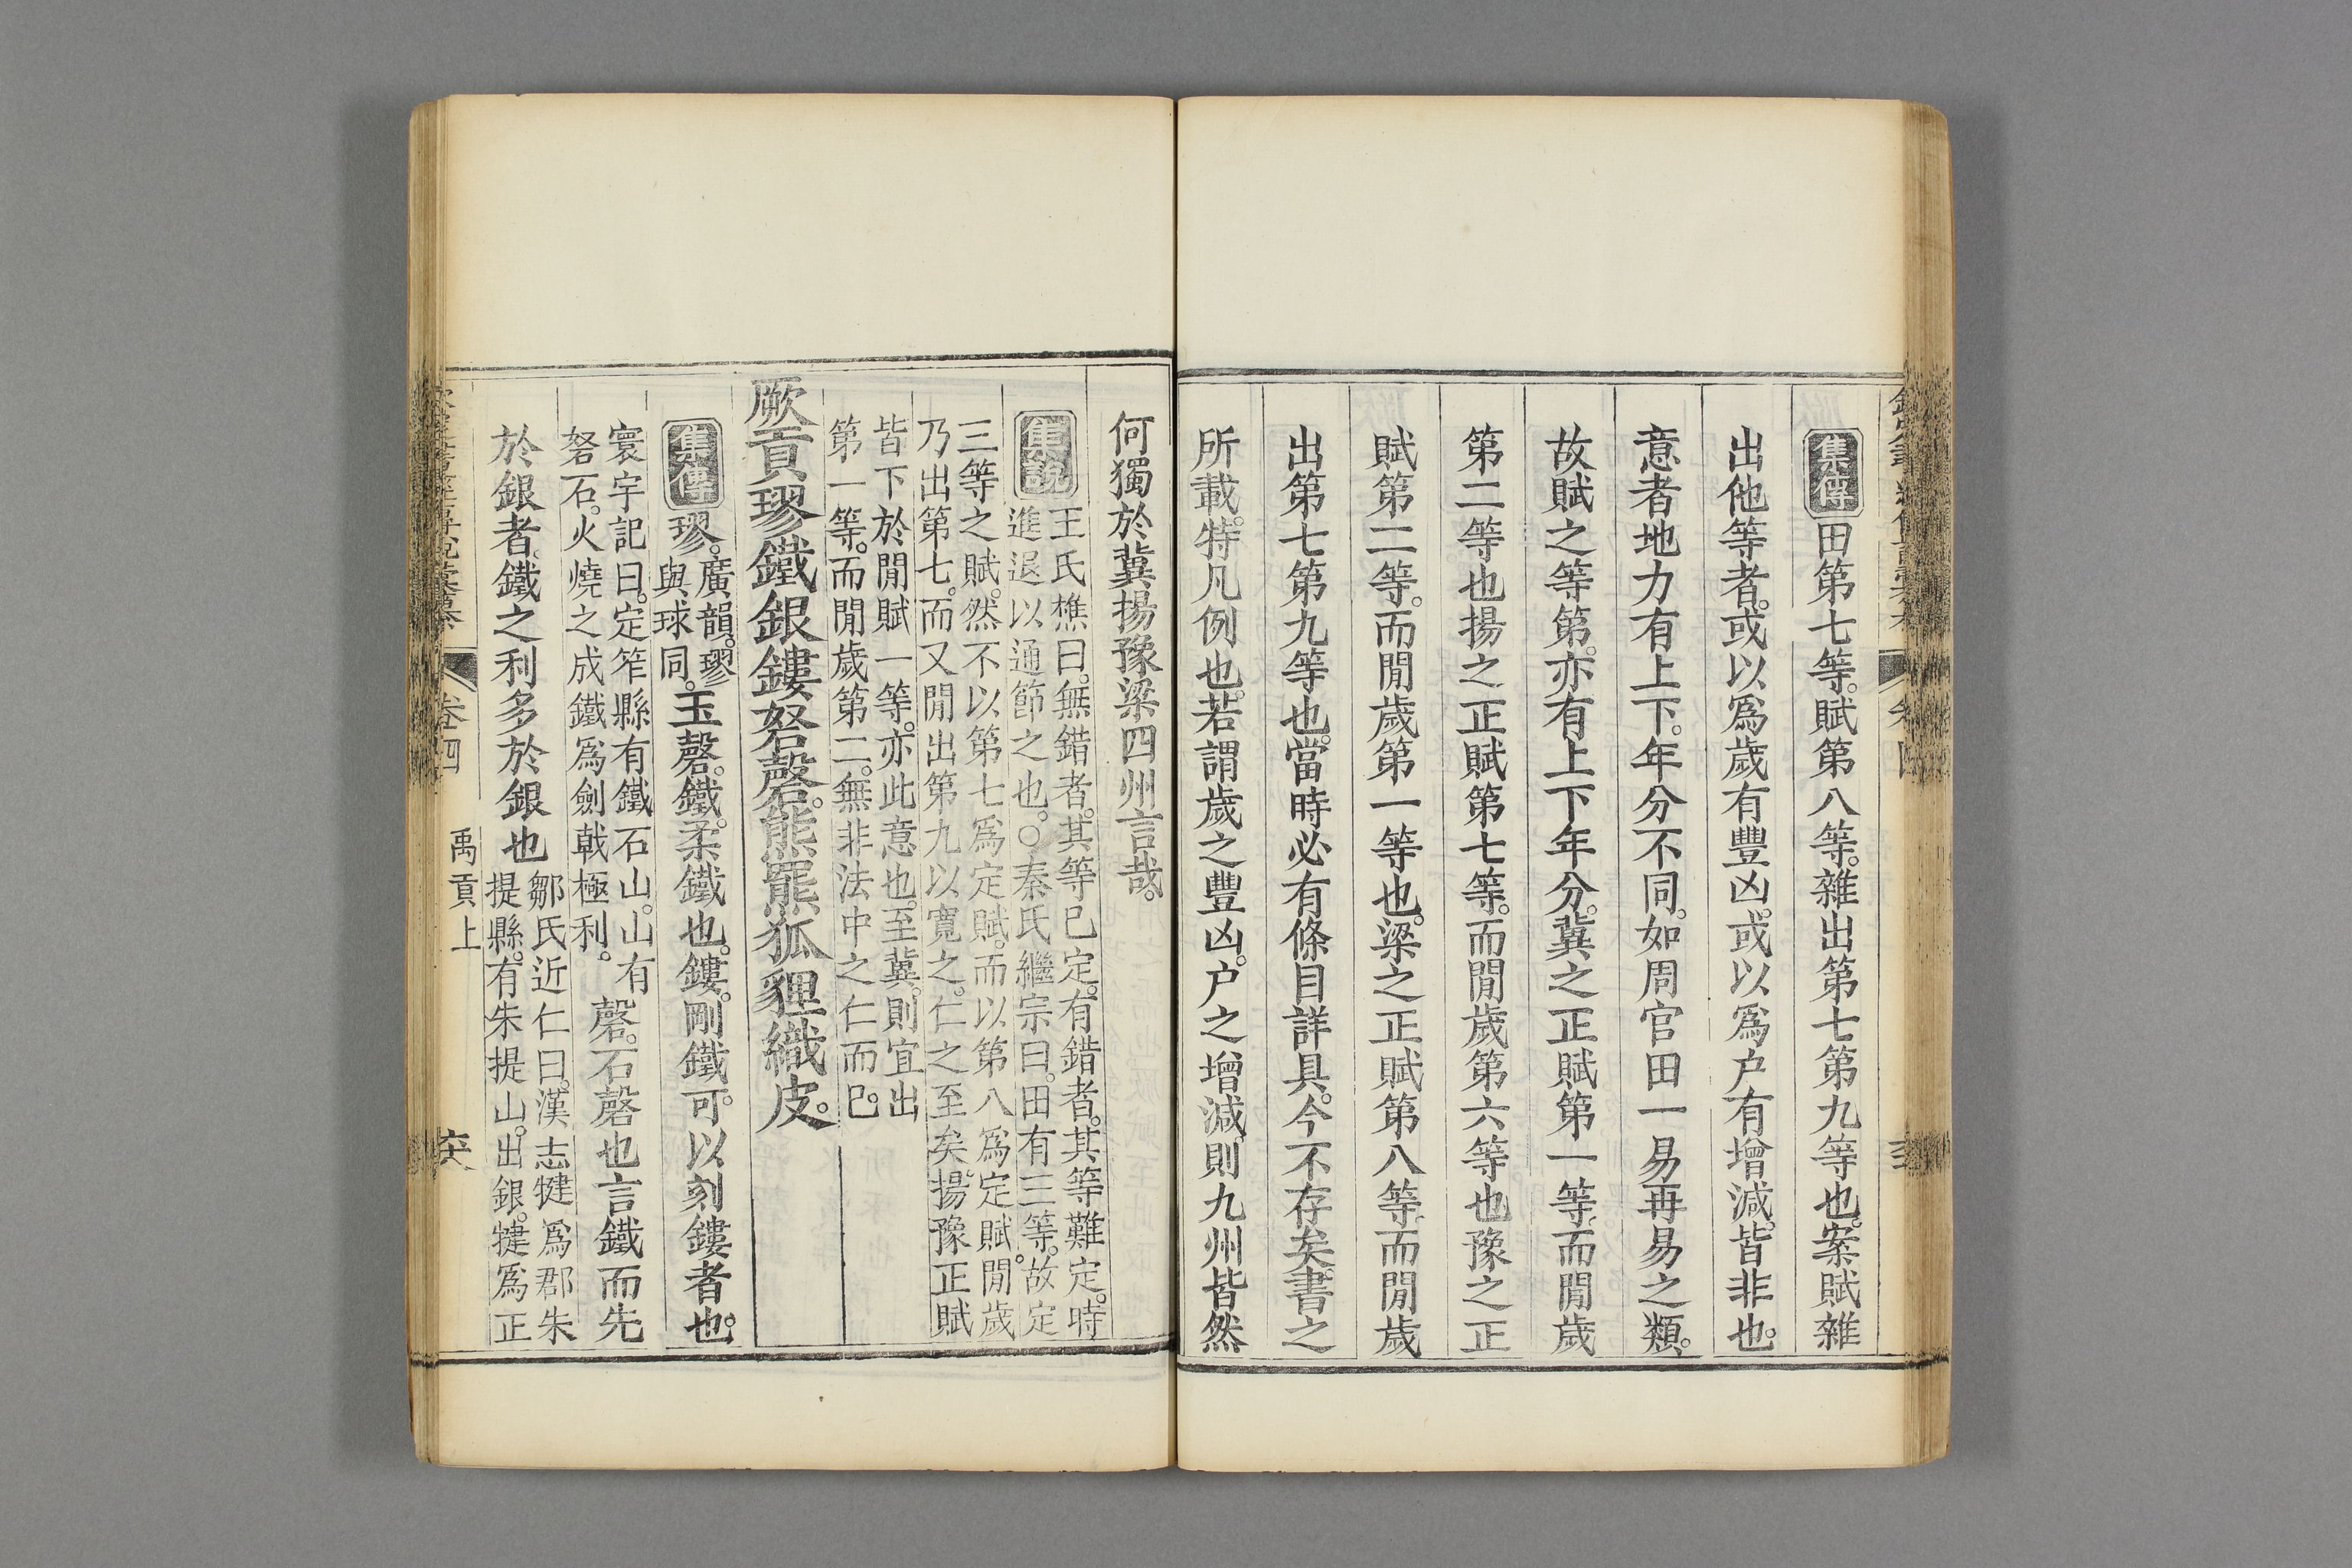 集傳田第七等。賦第八等。雜出第七第九等也。案賦雜
出他等者。或以爲歲有豐凶。或以爲户有增減。皆非也。
意者地力有上下。年分不同。如周官田一易再易之類。
故賦之等第。亦有上下年分。冀之正賦第一等。而閒歲
第二等也揚之正賦第七等。而閒歲第六等也豫之正
賦第二等。而閒歲第一等也。梁之正賦第八等。而閒歲
出第七第九等也。當時必有條目詳具。今不存矣。書之
所載。特凡例也。若謂歲之豐凶。户之增減。則九州皆然
何獨於冀揚豫梁四州言哉。
集說王氏樵曰。無錯者。其等已定。有錯者。其等難定。時
進退以通節之也。○秦氏繼宗曰。田有三等。故定
三等之賦。然不以第七爲定賦。而以第八爲定賦。閒歲
乃出第七。而又閒出第九以寬之。仁之至矣。揚豫正賦
皆下於閒賦一等。亦此意也。至冀。則宜出
第一等。而閒歲第二。無非法中之仁而已。
厥貢璆鐵銀鏤砮磬。熊羆狐貍織皮。
集傳璆。廣韻。璆與球同。玉磬。鐵。柔鐵也。鏤。剛鐵。可以刻鏤者也。
寰宇記曰。定筰縣有鐵石山。山有砮石。火燒之成鐵爲劍戟極利。磬。石磬也言鐵而先
於銀者。鐵之利多於銀也鄒氏近仁曰。漢志犍爲郡朱提縣。有朱提山。出銀。犍爲正
卷四
禹貢上